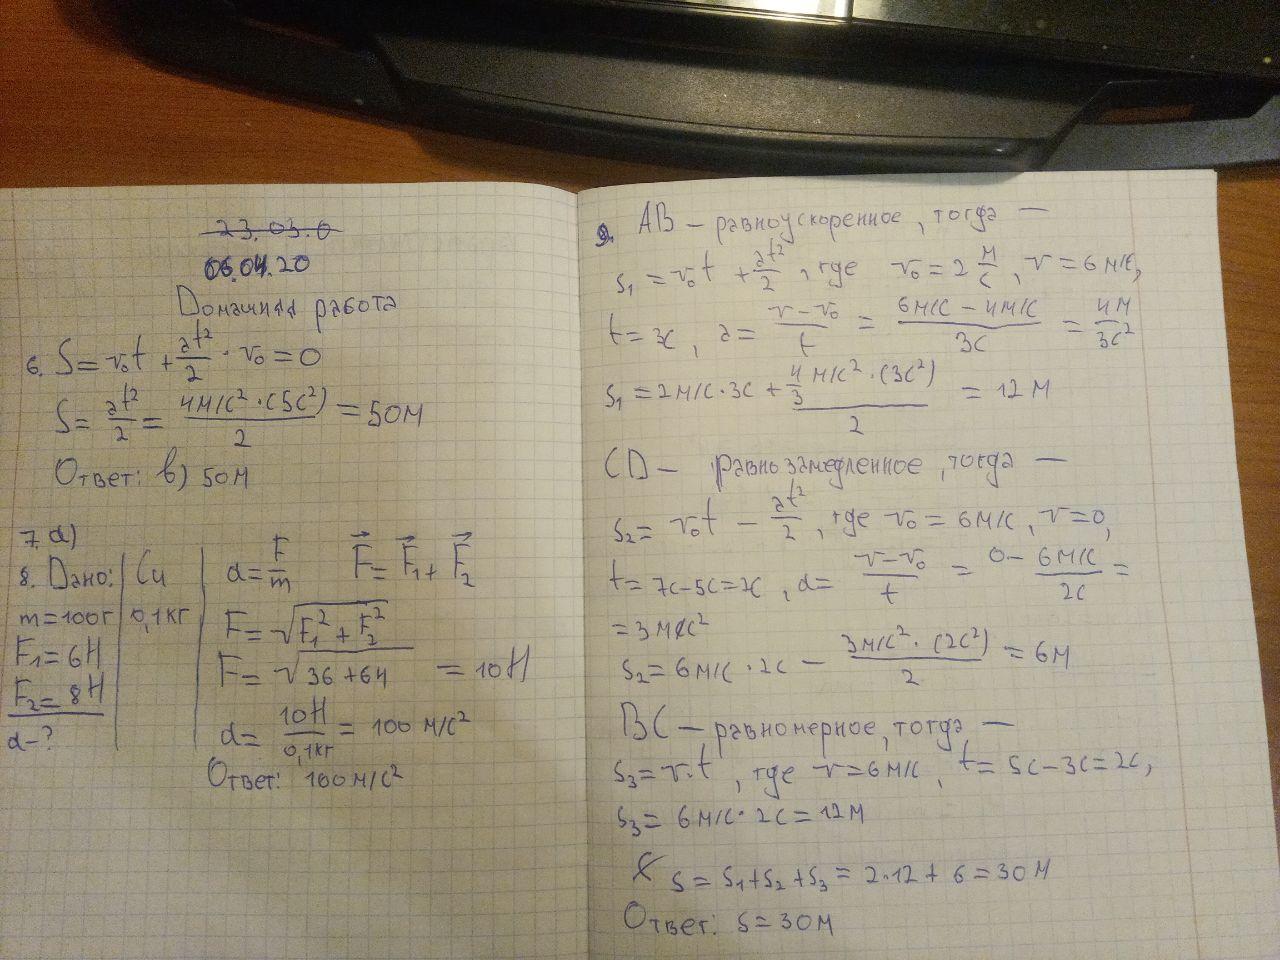 23.03.0
06.04.20
Домашняя работа
6. S = v₀t + at²/2 · v₀ = 0
S = at²/2 = 4м/с² · (5с²)/2 = 50м
Ответ: в) 50м
7. а)
8. Дано: | Си | a = F/m F⃗ = F⃗₁ + F⃗₂
m = 100г | 0,1кг | F = √(F₁² + F₂²)
F₁ = 6Н
F = √(36 + 64) = 10Н
F₂ = 8Н
a - ? a = 10Н/0,1кг = 100 м/с²
Ответ: 100м/с²
9. AB – равноускоренное, тогда —
S₁ = v₀t + at²/2, где v₀ = 2 м/с, v = 6м/с,
t = 3с, a = v – v₀/t = 6м/с – 4м/с/3с = 4м/3с²
S₁ = 2м/с · 3с + 4/3 м/с² · (3с²)/2 = 12м
CD – равнозамедленное, тогда —
S₂ = v₀t – at²/2, где v₀ = 6м/с, v = 0,
t = 7с – 5с = 2с, a = v – v₀/t = 0 – 6м/с/2с =
= 3м/с²
S₂ = 6м/с · 2с – 3м/с² · (2с²)/2 = 6м
BC – равномерное, тогда —
S₃ = v·t, где v = 6м/с, t = 5с – 3с = 2с,
S₃ = 6м/с · 2с = 12м
S = S₁ + S₂ + S₃ = 2·12 + 6 = 30м
Ответ: S = 30м